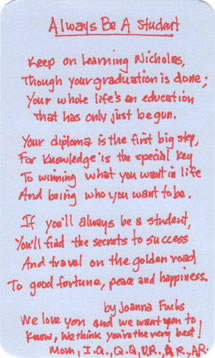 Always Be A Student
Keep on learning Nicholas,
Though your graduation is done;
Your whole life's an education
that has only just begun.
Your diploma is the first big step,
For knowledge is the special key
To winning what you want in life
And being who you want to be.
If you'll always be a student,
You'll find the secrets to success
And travel on the golden road
To good fortune, peace and happiness.
by Joanna Fuchs
We love you and we want you to
Know, we think you're the very best!
Mom,